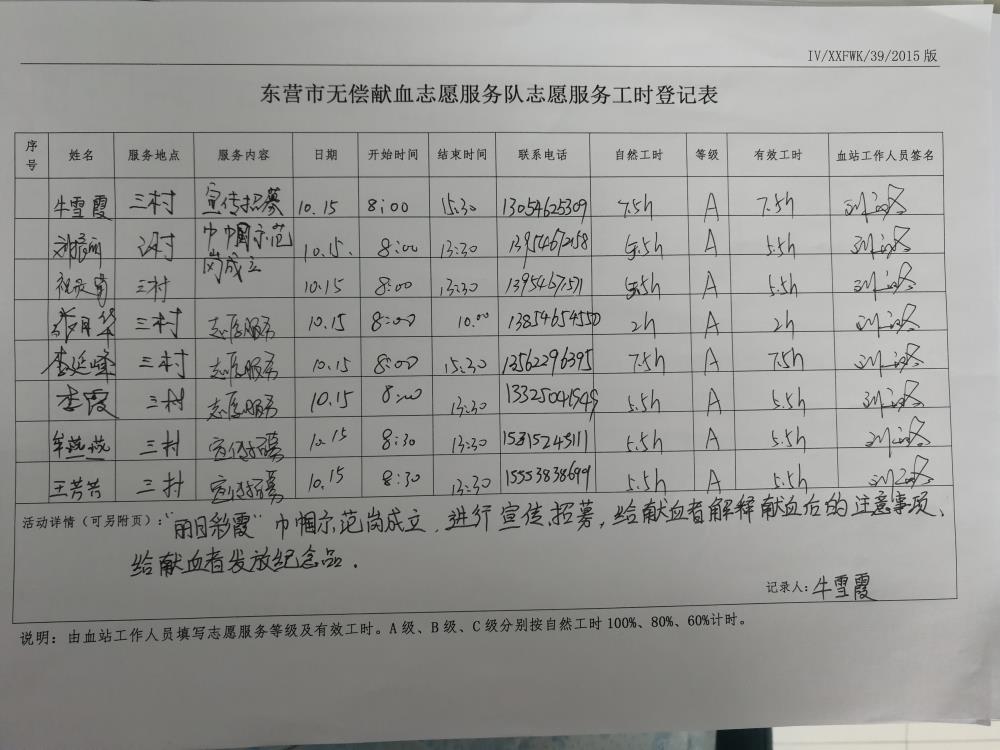 IV/XXFWK/39/2015版
东营市无偿献血志愿服务队志愿服务工时登记表
序号 姓名 服务地点 服务内容 日期 开始时间 结束时间 联系电话 自然工时 等级 有效工时 血站工作人员签名
牛雪霞 三村 宣传招募 10.15 8:00 15:30 13054625309 7.5h A 7.5h
巾帼示范岗成立 10.15. 8:00 13:30 5.5h A 5.5h
三村 10.15 8:00 13:30 5.5h A 5.5h
三村 志愿服务 10.15 8:00 10:00 13854654550 2h A 2h
李延峰 三村 志愿服务 10.15 8:00 15:30 13562296395 7.5h A 7.5h
李霞 三村 志愿服务 10.15 8:00 13:30 13325041549 5.5h A 5.5h
牟燕燕 三村 宣传招募 10.15 8:30 13:30 15315243111 5.5h A 5.5h
王芳芳 三村 宣传招募 10.15 8:30 13:30 15553838699 5.5h A 5.5h
活动详情（可另附页）：“丽日彩霞”巾帼示范岗成立.进行宣传招募,给献血者解释献血后的注意事项、
给献血者发放纪念品.
记录人：牛雪霞
说明：由血站工作人员填写志愿服务等级及有效工时。A级、B级、C级分别按自然工时100%、80%、60%计时。